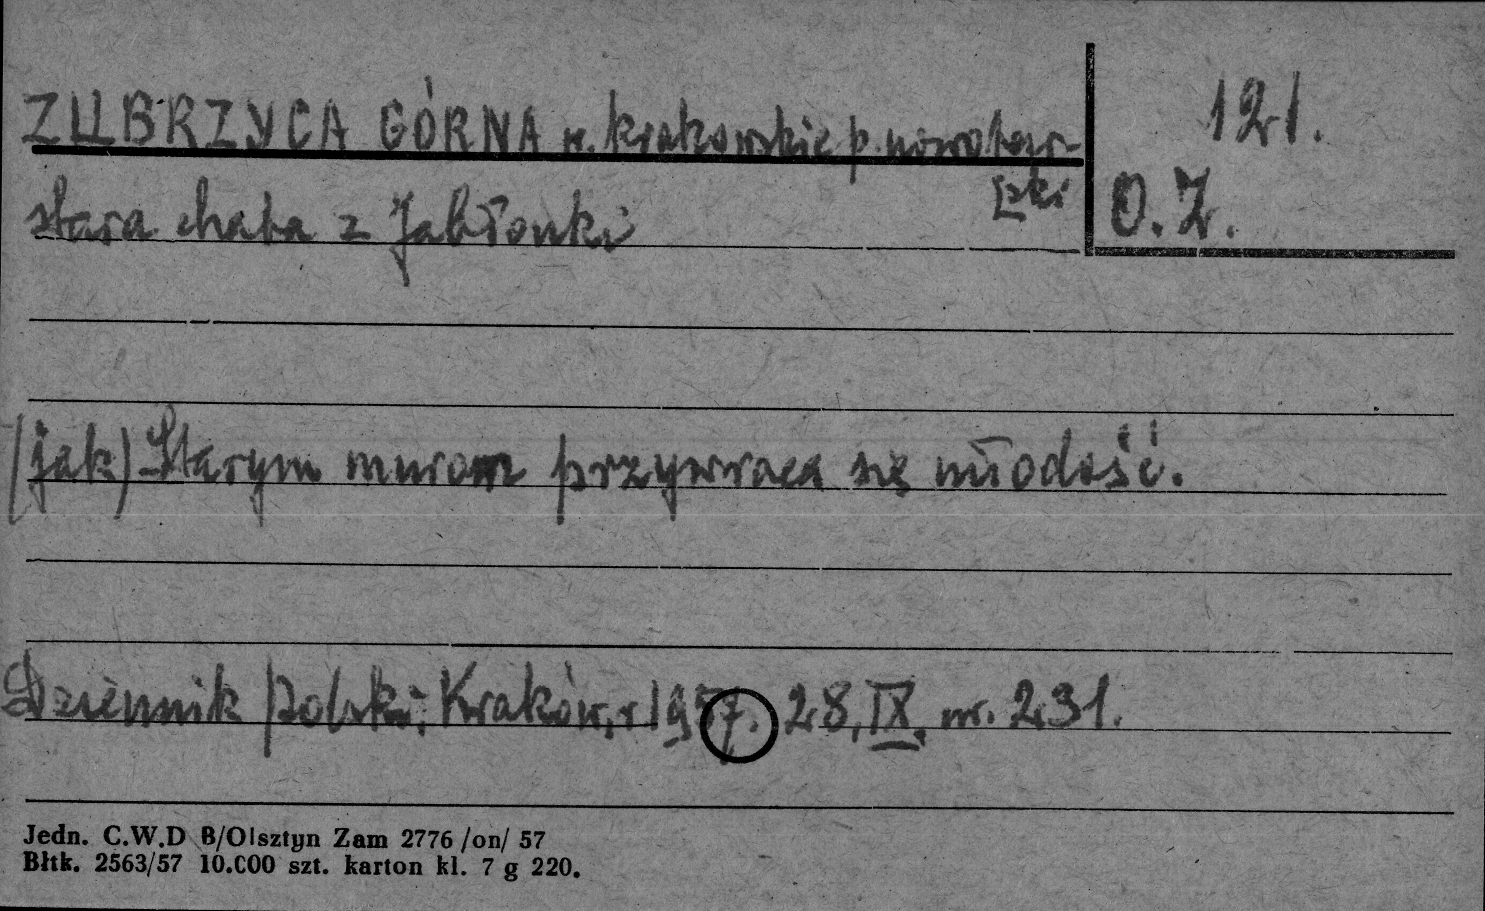 ZUBRZYCA GÓRNA w. krakowskie p. nowotar-
ski
121.
O.Z.
stara chata z Jabłonki
(jak) Starym murom przywraca się młodość.
Dziennik Polski, Kraków, r 1957. 28, IX. nr. 231.
Jedn. C.W.D B/Olsztyn Zam 2776 /on/ 57
Błtk. 2563/57 10.000 szt. karton kl. 7 g 220.